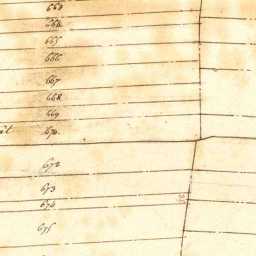 663
664
665
666
667
668
669
670
672
673
674
675